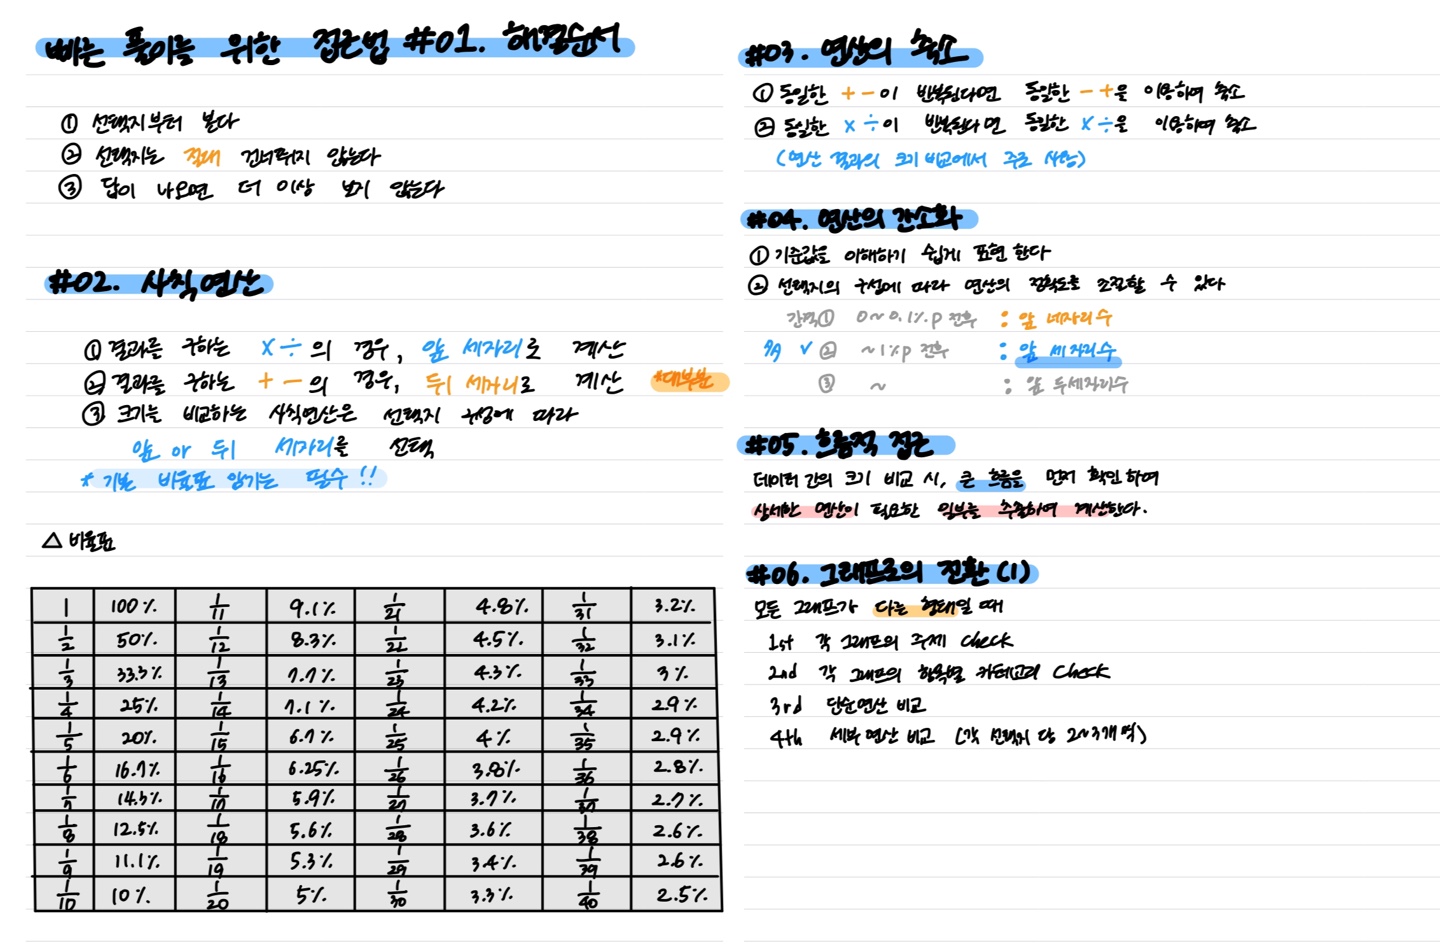 빠른 풀이를 위한 접근법 #01. 해결순서
① 선택지부터 본다
② 선택지는 절대 건너뛰지 않는다
③ 답이 나오면 더 이상 보지 않는다
#02. 사칙연산
① 결과를 구하는 × ÷ 의 경우, 앞 세자리로 계산
② 결과를 구하는 + − 의 경우, 뒤 세자리로 계산 *대부분
③ 크기를 비교하는 사칙연산은 선택지 구성에 따라
앞 or 뒤 세자리를 선택
* 기본 비율표 암기는 필수 !!
△ 비율표
1 100% 1/11 9.1% 1/21 4.8% 1/31 3.2%
1/2 50% 1/12 8.3% 1/22 4.5% 1/32 3.1%
1/3 33.3% 1/13 7.7% 1/23 4.3% 1/33 3%
1/4 25% 1/14 7.1% 1/24 4.2% 1/34 2.9%
1/5 20% 1/15 6.7% 1/25 4% 1/35 2.9%
1/6 16.7% 1/16 6.25% 1/26 3.8% 1/36 2.8%
1/7 14.3% 1/17 5.9% 1/27 3.7% 1/37 2.7%
1/8 12.5% 1/18 5.6% 1/28 3.6% 1/38 2.6%
1/9 11.1% 1/19 5.3% 1/29 3.4% 1/39 2.6%
1/10 10% 1/20 5% 1/30 3.3% 1/40 2.5%
#03. 연산의 축소
① 동일한 + − 이 반복된다면 동일한 − + 을 이용하여 축소
② 동일한 × ÷ 이 반복된다면 동일한 × ÷ 을 이용하여 축소
(연산 결과의 크기 비교에서 주로 사용)
#04. 연산의 간소화
① 기준값을 이해하기 쉽게 표현 한다
② 선택지의 구성에 따라 연산의 정확도를 조절할 수 있다
간격 ① 0~0.1%p 전후 : 앞 네자리수
✓ ② ~1%p 전후 : 앞 세자리수
③ ~ : 앞 두세자리수
#05. 흐름적 접근
데이터 간의 크기 비교 시, 큰 흐름을 먼저 확인하여
상세한 연산이 필요한 일부를 추출하여 계산한다.
#06. 그래프로의 전환 (1)
모든 그래프가 다른 형태일 때
1st 각 그래프의 주제 check
2nd 각 그래프의 항목별 카테고리 check
3rd 단순연산 비교
4th 세부 연산 비교 (각 선택지 당 2~3개 씩)